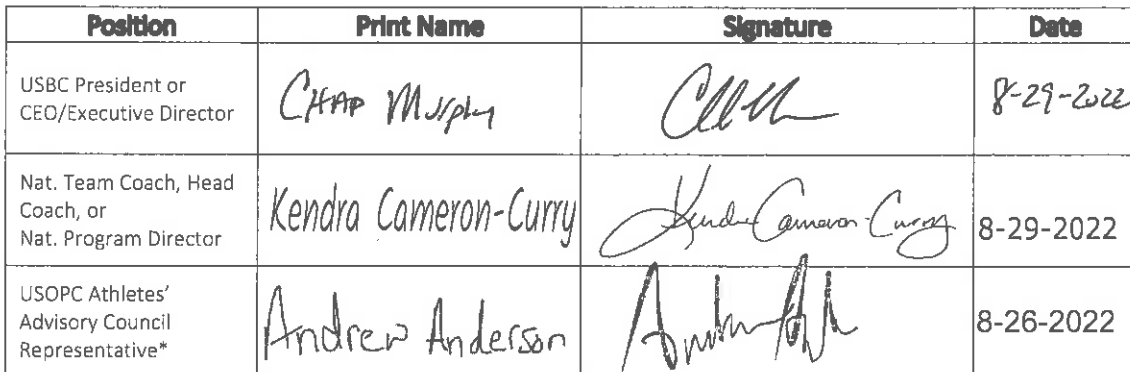 Position Print Name Signature Date
USBC President or
CEO/Executive Director
CHAD Murphy
8-29-2022
Nat. Team Coach, Head
Coach, or
Nat. Program Director
Kendra Cameron-Curry
Kendra Cameron-Curry
8-29-2022
USOPC Athletes'
Advisory Council
Representative*
Andrew Anderson
8-26-2022